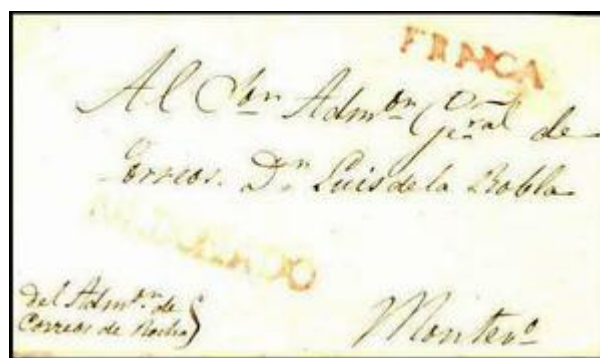 FRANCA
Al Sor Admor Gral de
Correos. Dn Luis de la Robla
del Admor de
Correos de Rocha
Montevo